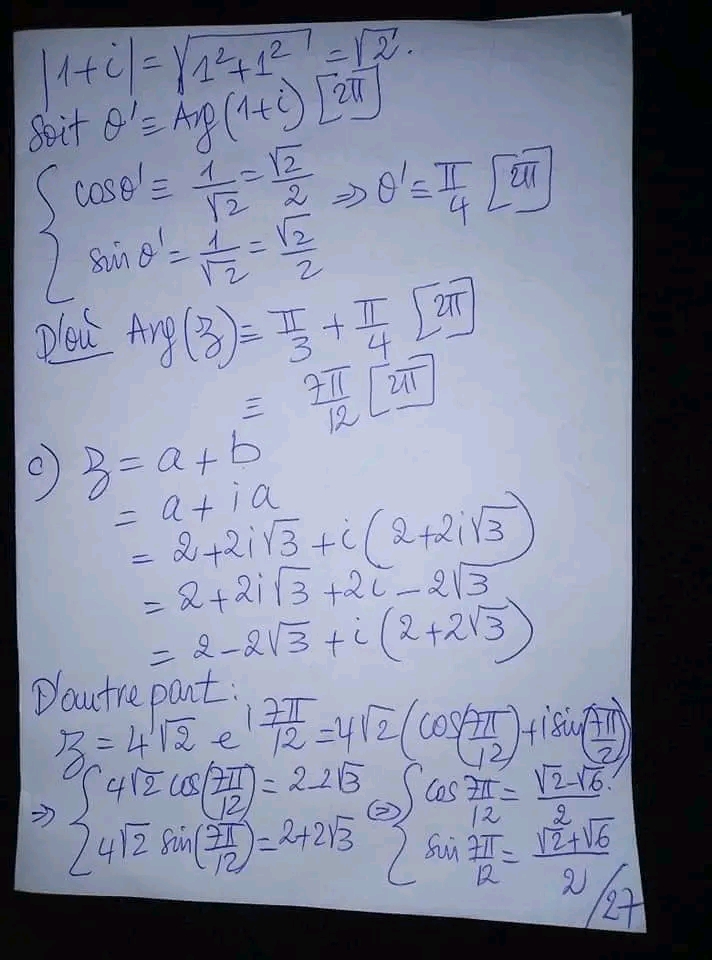 |1+i| = √(1²+1²) = √2.
Soit θ' ≡ Arg(1+i) [2π]
{ cosθ' = 1/√2 = √2/2
sinθ' = 1/√2 = √2/2 ⇒ θ' ≡ π/4 [2π]
D'où Arg(z) = π/3 + π/4 [2π]
≡ 7π/12 [2π]
c) z = a + b
= a + i a
= 2+2i√3 + i(2+2i√3)
= 2+2i√3 +2i - 2√3
= 2-2√3 + i(2+2√3)
D'autre part:
z = 4√2 e^(i 7π/12) = 4√2 (cos(7π/12) + i sin(7π/2)
⇒ { 4√2 cos(7π/12) = 2-2√3 ⇔ { cos 7π/12 = (√2-√6)/2.
4√2 sin(7π/12) = 2+2√3 sin 7π/12 = (√2+√6)/2
/27